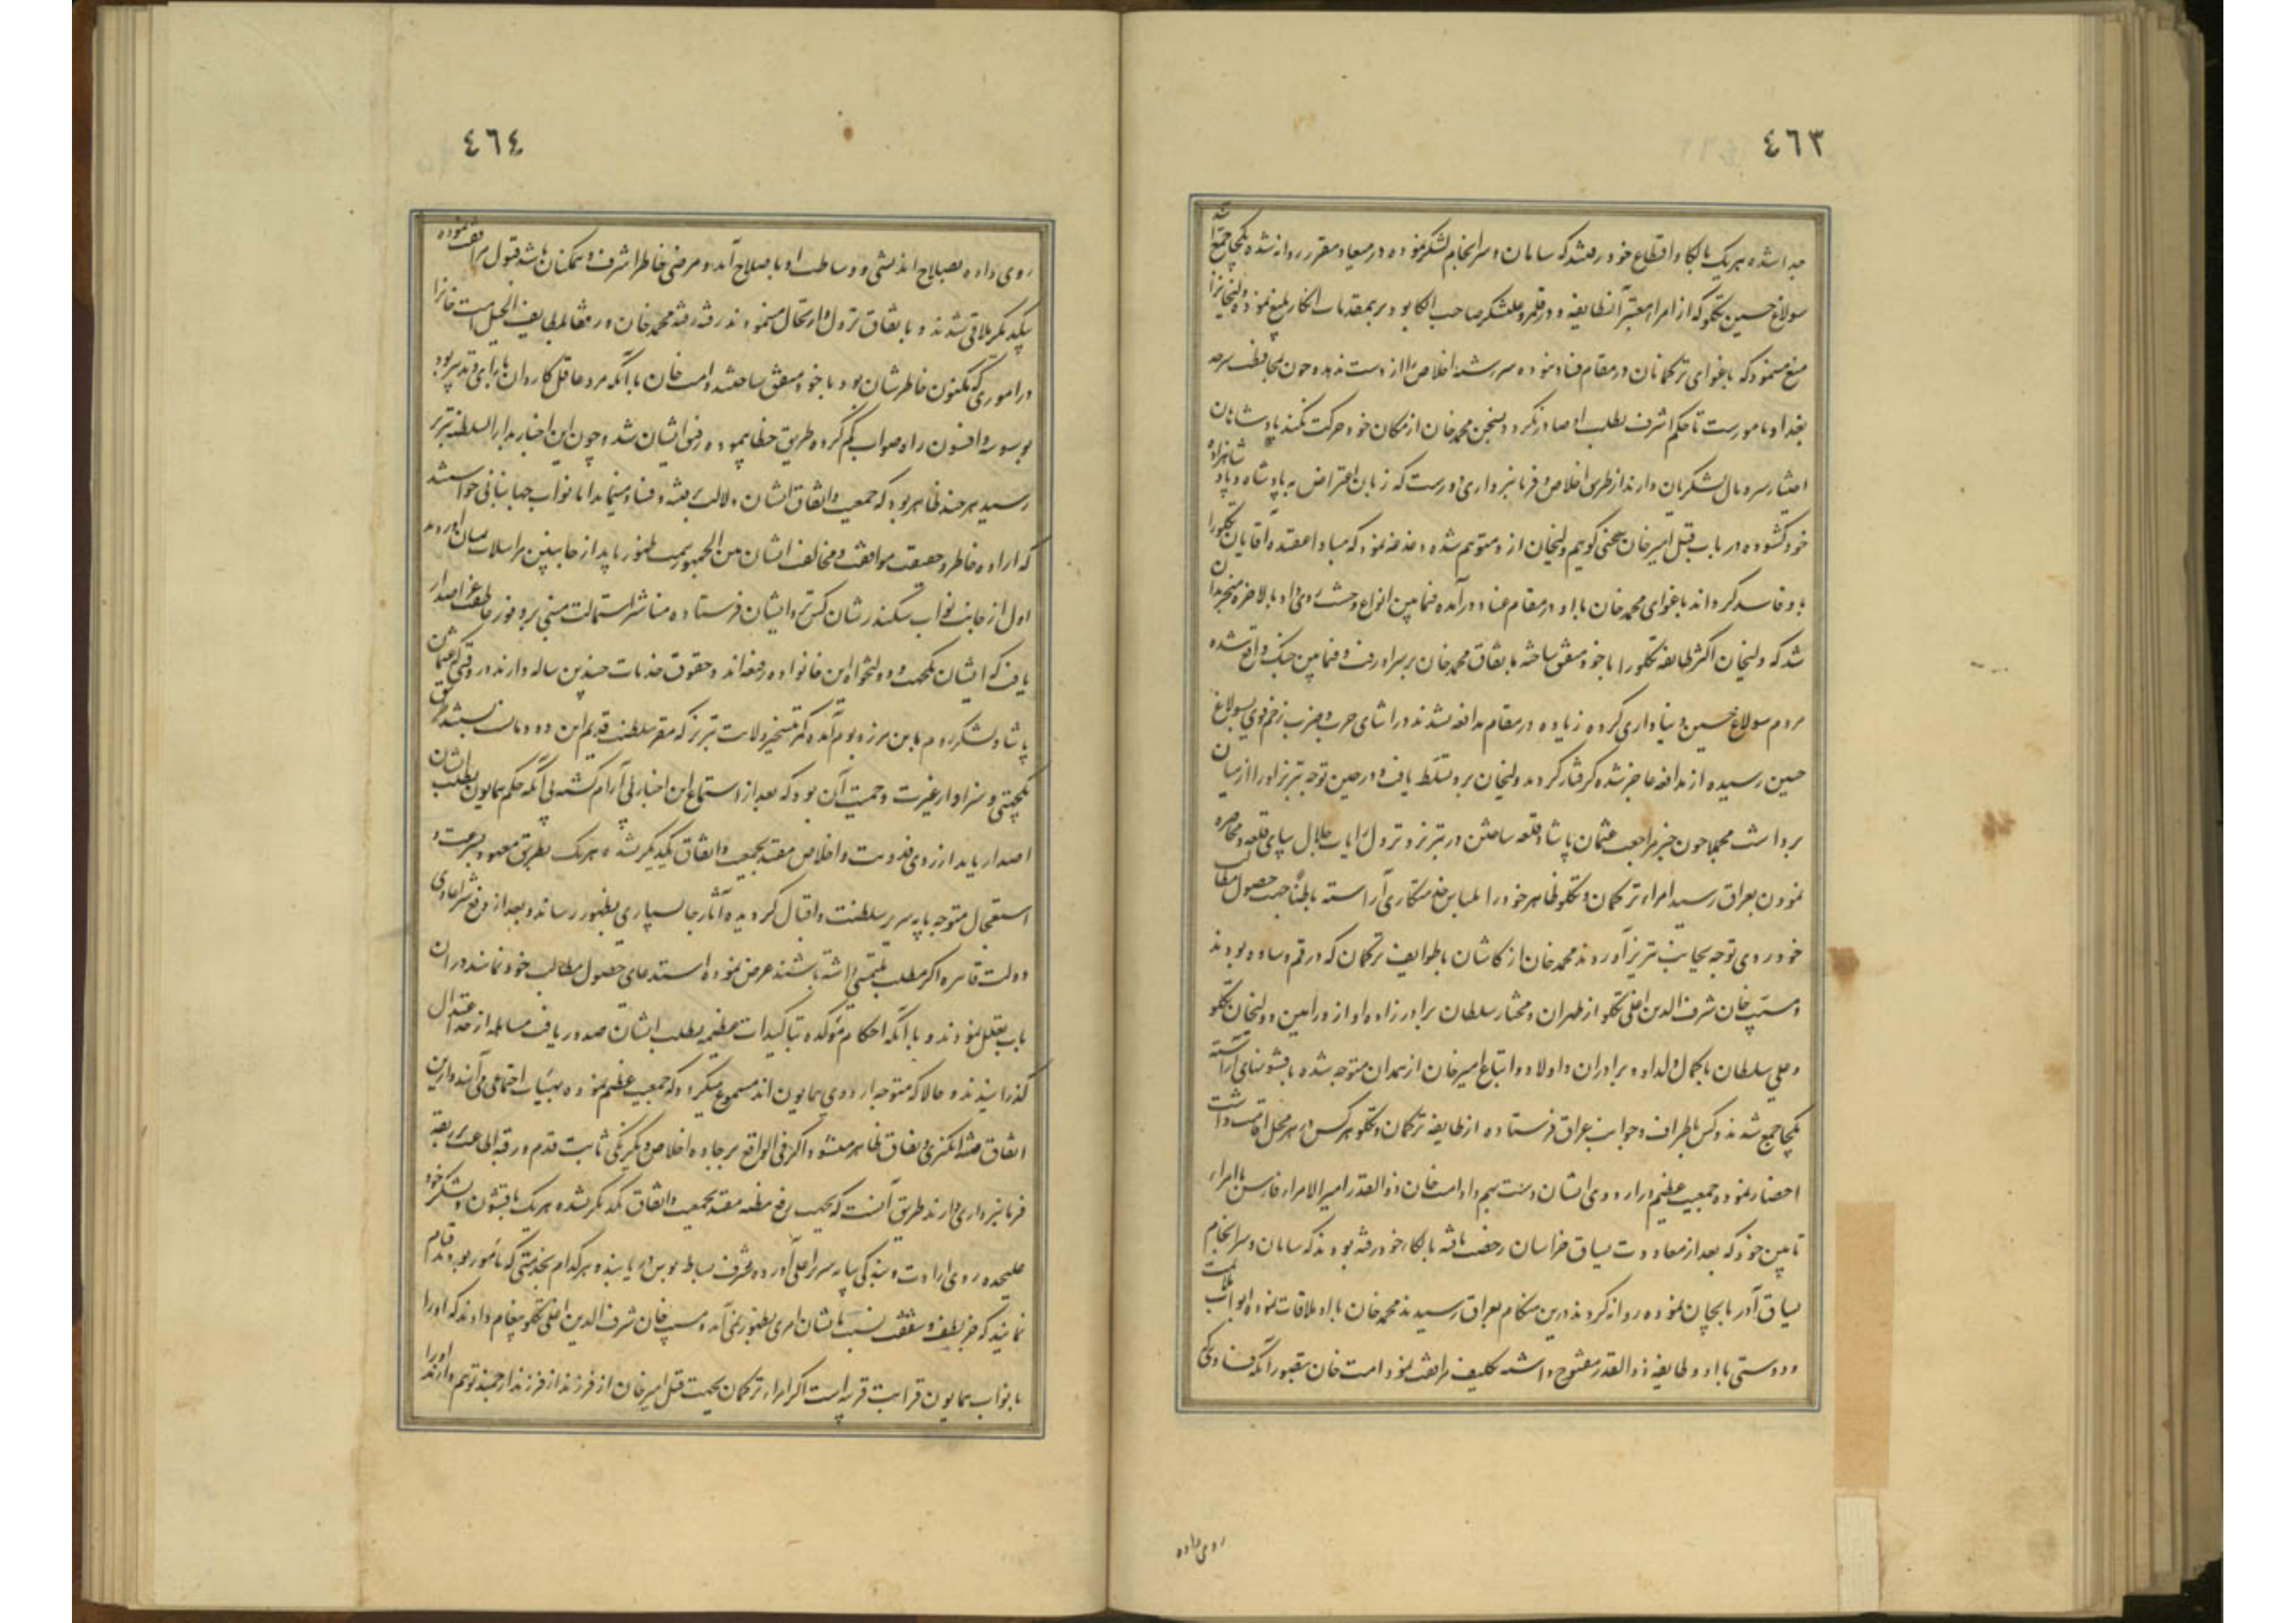 ٤٦٣
جدا شده هر یک بالکا و اقطاع خود رفتند که سامان و سرانجام لشکر نموده در میعاد مقرر روانه شده یکجا جمع شد
سولاغ حسین تکلو که از امراء معتبر آنطایفه و در قلمرو علیشکر صاحب الکا بود بر بمقدمات انکار بلیغ نموده ولیخانرا
منع مینمود که باغوای ترکمانان در مقام فساد نبوده سررشته اخلاص را از دست ندهد و چون بمحافظت سرحد
بغداد مامورست تا حکم اشرف بطلب او صادر نگردد بسخن محمد خان از مکان خود حرکت نکند پادشاهان
اختیار سر و مال لشکریان دارند از طریق اخلاص و فرمانبرداری دورست که زبان اعتراض به پادشاه و پادشاهزاده
خود گشوده در باب قتل امیرخان سخنی گوییم ولیخان ازو متوهم شده دغدغه نمود که مبادا عقیده آقایان تکلورا
باو فاسد گرداند باغوای محمد خان با او در مقام عناد درآمده فیمابین انواع وحشت روی داد بالاخره منجر بدان
شد که ولیخان اکثر طایفه تکلورا با خود متفق ساخته باتفاق محمد خان بر سر او رفت و فیمابین جنک واقع شده
مردم سولاغ حسین و بنیاد اری کرده زیاده در مقام مدافعه نشدند در اثنای حرب و ضرب زخم قوی بسولاغ
حسین رسیده از مدافعه عاجز شده گرفتار گردید ولیخان برو تسلط یافت و در حین توجه تبریز او را از میان
برداشت مجملا چون خبر مراجعت عثمان پاشا و قلعه ساختن در تبریز و نزول رایات جلال بپای قلعه و محاصره
نمودن بعراق رسید امراء ترکمان و تکلو ظاهر خود را بلباس خدمتکاری آراسته باطناً جهت حصول مطالب
خود روی توجه بجانب تبریز آوردند محمد خان از کاشان با طوایف ترکمان که در قم و ساوه بودند
و مسیب خان شرف الدین اغلی تکلو از طهران و مختار سلطان برادرزاده او از ورامین و ولیخان تکلو
و علی سلطان با کمال ولد او و برادران و اولاد و اتباع امیرخان از همدان متوجه شده با قشونهای آراسته
یکجا جمع شدند و کس باطراف و جوانب عراق فرستاده از طایفه ترکمان و تکلو هر کس در هر محل اقامت داشت
احضار نمودند و جمعیت عظیم در اردوی ایشان دست بهم داد امت خان ذوالقدر امیر الامراء فارس با امراء
تابین خود که بعد از معاودت یساق خراسان رخصت یافته بالکاء خود رفته بودند که سامان و سرانجام
یساق آذربایجان نموده روانه گردند درین هنگام بعراق رسیدند محمد خان با او ملاقات نموده ابواب ملایمت
و دوستی با او و طایفه ذوالقدر مفتوح داشته تکلیف مرافقت نمود امت خان بتصور آنکه فسادی که
روی داده
٤٦٤
روی داده بصلاح اندیشی و وساطت او باصلاح آید و مرضی خاطر اشرف و همکنان باشد قبول مرافقت نموده
بیکدیگر ملاقی شدند و باتفاق نزول و ارتحال مینمودند رفته رفته محمد خان در مقام لطایف الحیل امت خانرا
در اموری که مکنون خاطر شان بود با خود متفق ساختند و امت خان با آنکه مرد عاقل کاردان با رای و تدبیر بود
بوسوسه و افسون راه صواب گم کرده طریق خطا پیموده رفیق ایشان شد و چون این اخبار بدار السلطنه تبریز
رسید هر چند ظاهر بود که جمعیت و اتفاق ایشان دلالت بفتنه و فساد مینماید اما نواب جهانبانی خواستند
که اراده خاطر و حقیقت موافقت و مخالفت ایشان من الجمهور بسمت ظهور یابد از جانبین مراسلات بمیان آوردند
اول از جانب نواب سکندر شان کس نزد ایشان فرستاده مناشیر استمالت مبنی بر وفور عاطفت عز اصدار
یافت که ایشان یکجهت و دولتخواه این خانواده رفیعه اند و حقوق خدمات چندین ساله دارند در وقتی که عثمان
پاشا و لشکر روم باین مرز و بوم آمده کمر تسخیر ولایت تبریز که مقر سلطنت قدیم این دودمان است بستند طریق
یکجهتی و سزاوار غیرت و حمیت آن بود که بعد از استماع این اخبار بی آرام گشته بی آنکه حکم همایون بطلب ایشان
اصدار یابد از روی فدویت و اخلاص مقید بجمعیت و اتفاق یکدیگر نشده هر یک بطریق معهود بسرعت و
استعجال متوجه پایه سریر سلطنت و اقبال گردیده آثار جانسپاری بظهور رسانند و بعد از رفع شر اعادی
دولت قاهره اگر مطلب و ملتمسی داشته باشند عرض نموده استدعای حصول مطالب خود نمایند در آن
باب تعلل نمودند و با آنکه احکام مؤکده بتاکیدات عظیمه بطلب ایشان صدور یافت مساهله از حد اعتدال
گذرانیدند و حالا که متوجه اردوی همایون اند مسموع میگردد که جمعیت عظیم نموده بهیئات اجتماعی می آیند و ازین
اتفاق فتنه انگیزی و نفاق ظاهر میشود اگر فی الواقع بر جاده اخلاص و یکرنگی ثابت قدم و رقبه اطاعت بربقه
فرمانبرداری دارند طریق آنست که بجهت رفع مظنه مقید بجمعیت و اتفاق یکدیگر نشده هر یک با قشون و لشکر خود
علیحده روی ارادت و بندگی بپایه سریر اعلی آورده بشرف بساط بوس در یابند و هر کدام بخدمتی که مأمور بودند قیام
نمایند که جز لطف و شفقت نسبت بایشان امری بظهور نمی آید و مسیب خان شرف الدین اغلی تکلو پیغام دادند که او را
با نواب همایون قرابت قریبه است اگر امراء ترکمان بجهت قتل امیرخان از فرزند از فرزند ارجمند توهم دارند او را